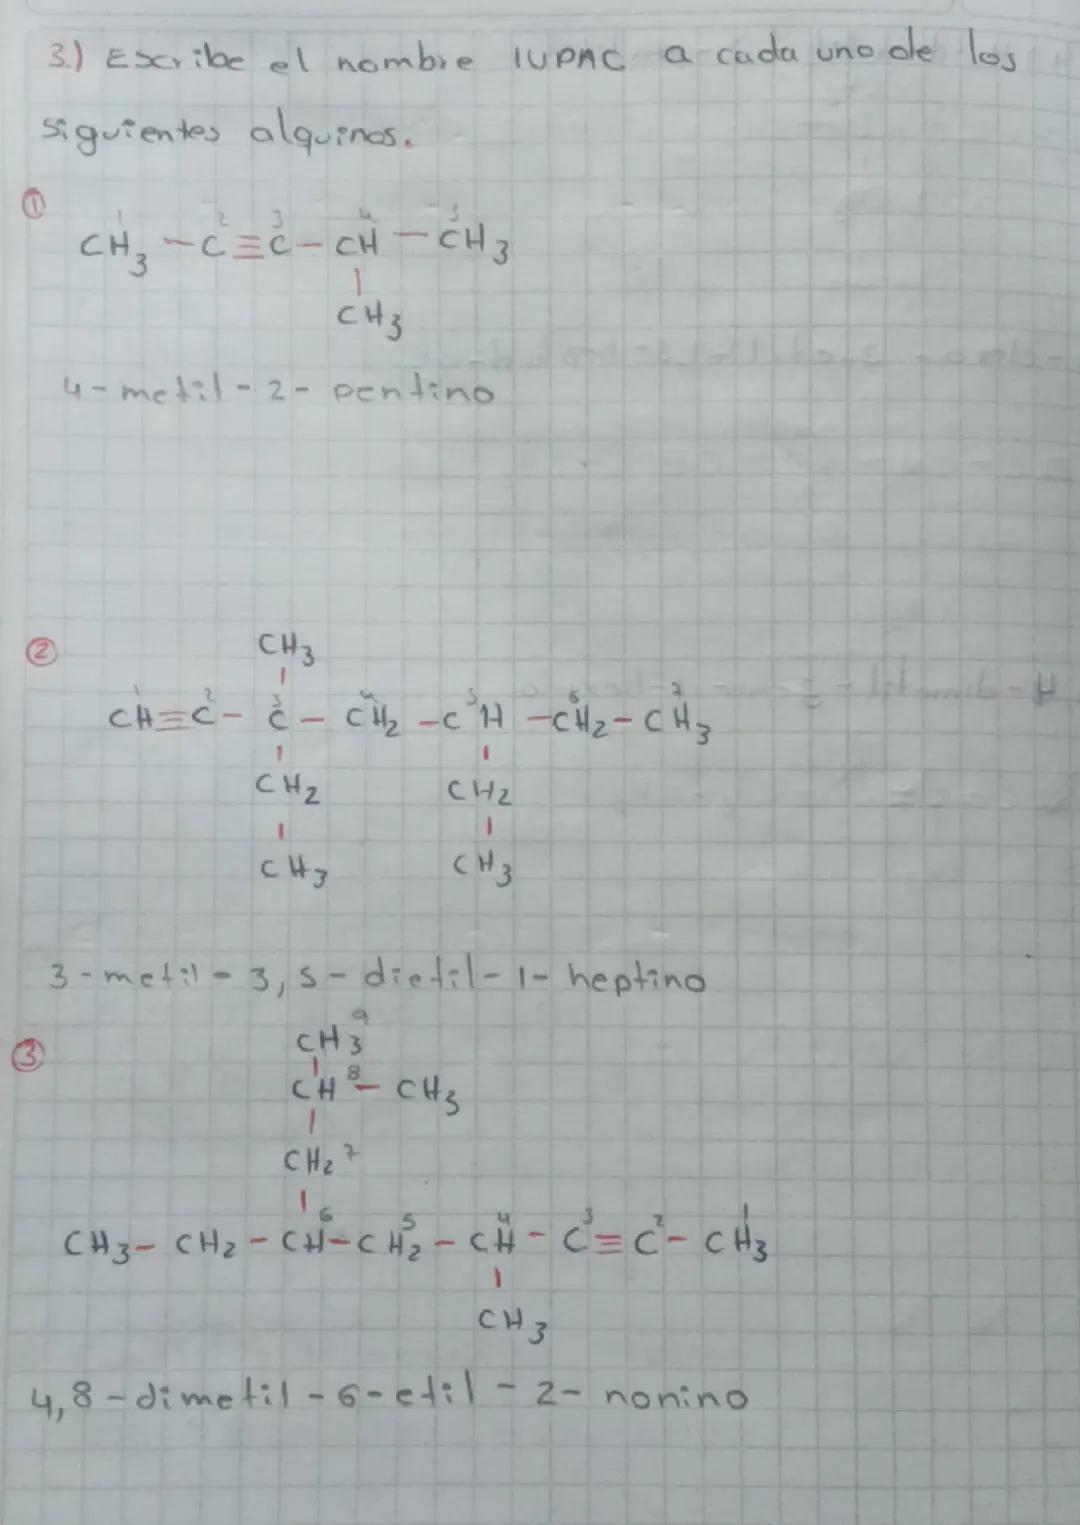 3.) Escribe el nombre IUPAC a cada uno de los
siguientes alquinos.
①
1 2 3 4 5
CH3 - C ≡ C - CH - CH3
CH3
4-metil-2-pentino
②
CH3
1 2 3 4 5 6 7
CH ≡ C - C - CH2 - CH - CH2 - CH3
CH2 CH2
CH3 CH3
3-metil-3,5-dietil-1-heptino
③
CH3 9
CH 8 - CH3
CH2 7
6 5 4 3 2 1
CH3 - CH2 - CH - CH2 - CH - C ≡ C - CH3
CH3
4,8-dimetil-6-etil-2-nonino